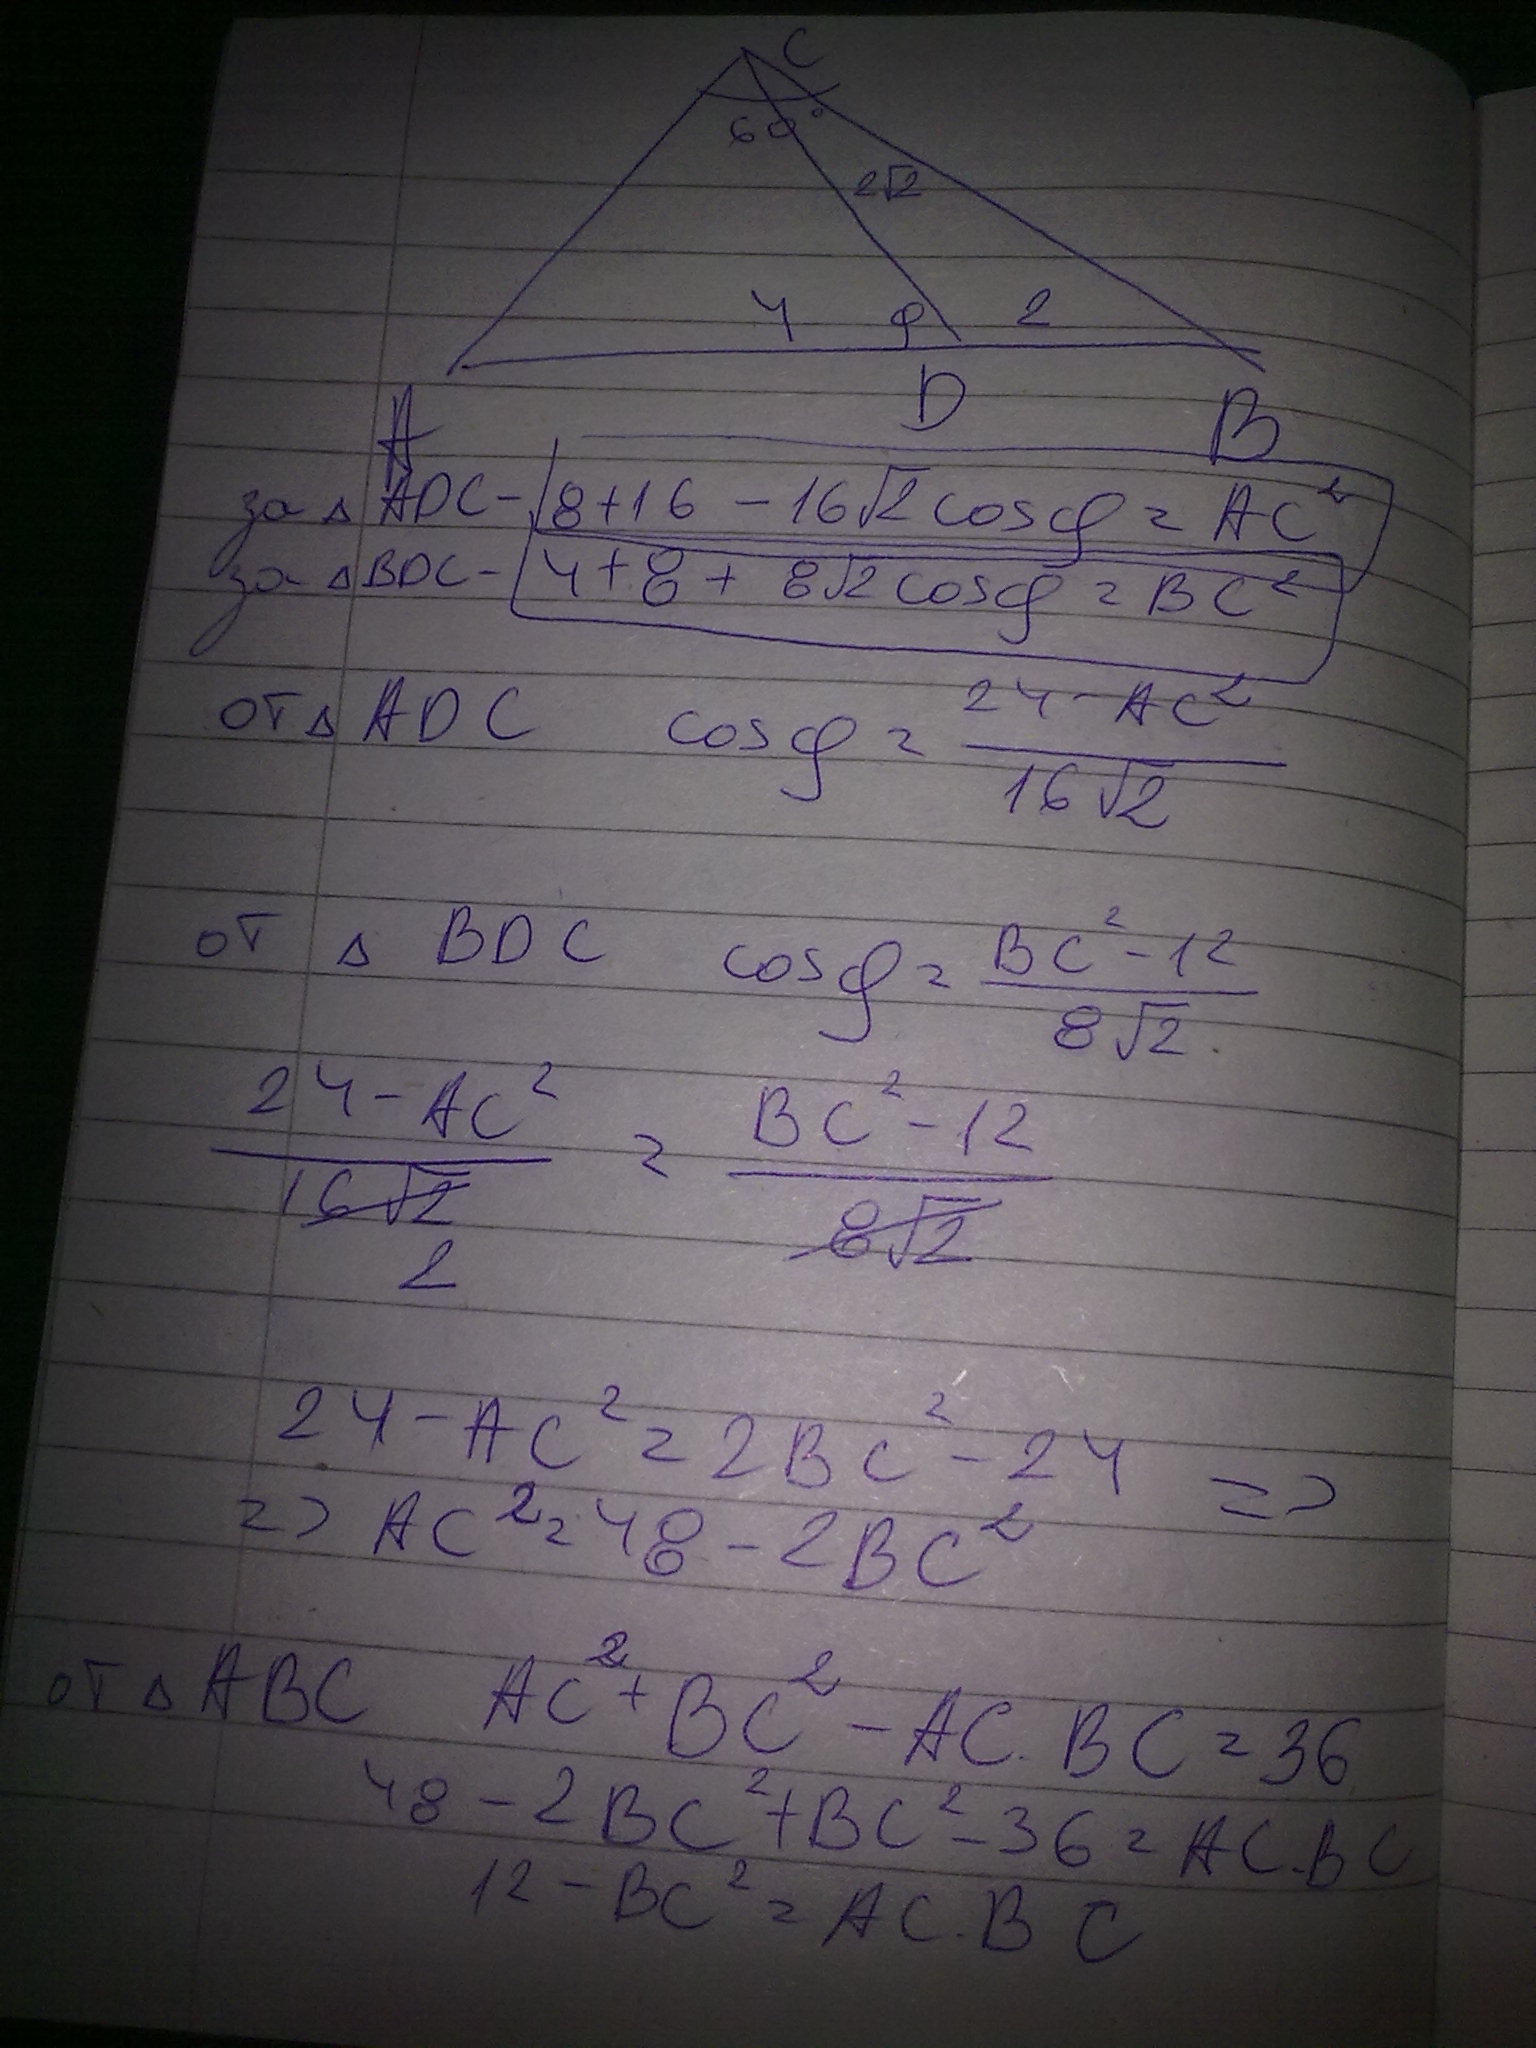 C
60°
2√2
4 φ 2
A D B
за △ ADC - 8+16 - 16√2 cosφ = AC²
за △ BDC - 4+8 + 8√2 cosφ = BC²
от △ ADC cosφ = (24 - AC²)/(16√2)
от △ BDC cosφ = (BC² - 12)/(8√2)
(24 - AC²)/(16√2) = (BC² - 12)/(8√2)
2
24 - AC² = 2BC² - 24 =>
=> AC² = 48 - 2BC²
от △ ABC AC² + BC² - AC.BC = 36
48 - 2BC² + BC² - 36 = AC.BC
12 - BC² = AC.BC